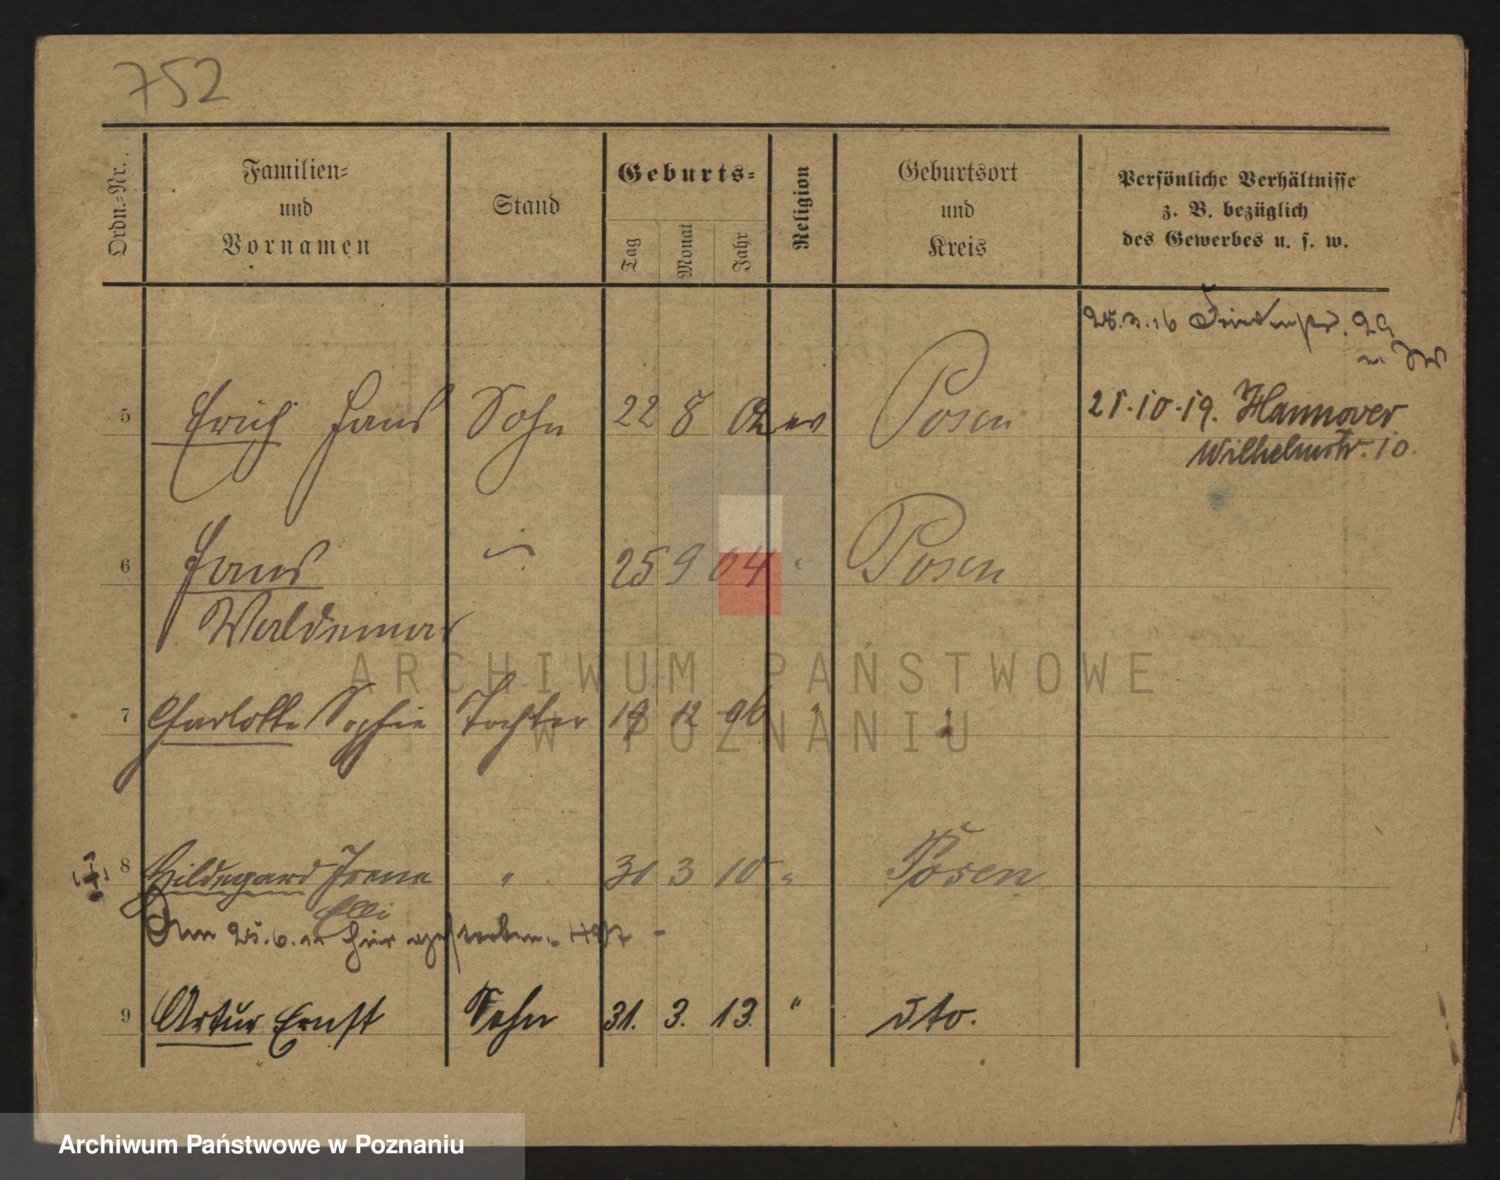 752
Ordn.-Nr.
Familien-
und
Vornamen
Stand
Geburts-
Tag
Monat
Jahr
Religion
Geburtsort
und
Kreis
Persönliche Verhältnisse
z. B. bezüglich
des Gewerbes u. s. w.
5 Erich Hans Sohn 22 8 02 ev Posen
21.10.19. Hannover
Wilhelmstr. 10.
6 Hans 25 9 04 " Posen
Waldemar
7 Charlotte Sophie Tochter 12 96 " "
8 Hildegard Irene " 31 3 10 " Posen
Elli
Am 25.6. hier gestorben.
9 Artur Ernst Sohn 31. 3. 13. " dto.
ARCHIWUM PAŃSTWOWE
W POZNANIU
Archiwum Państwowe w Poznaniu